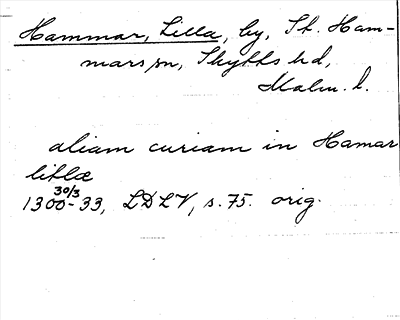 Hammar, Lilla, by, St. Ham-
mars sn, Skytts hd,
Malm. l.
aliam curiam in Hamar
litlæ
30/3
1300-33, LDLV, s. 75. orig.